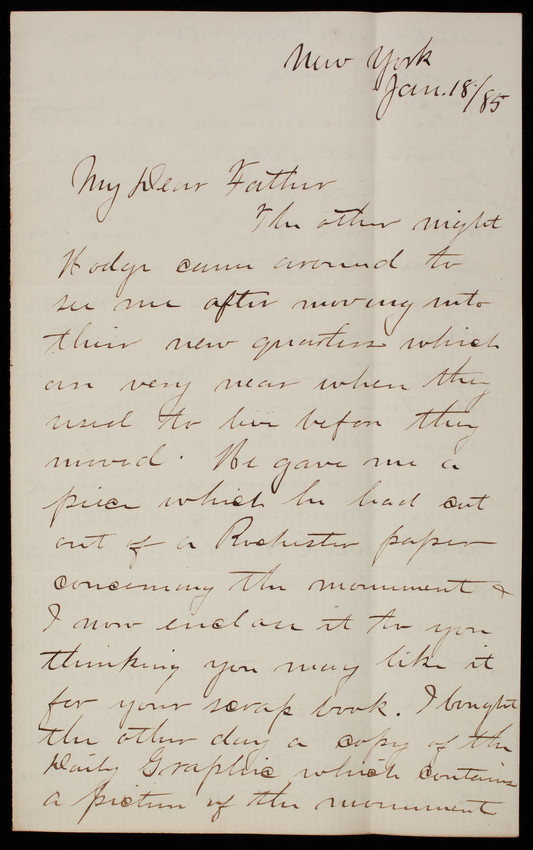 New York
Jan. 18/85
My Dear Father
The other night
Hodge came around to
see me after moving into
their new quarters which
are very near where they
used to live before they
moved. He gave me a
piece which he had cut
out of a Rochester paper
concerning the monument &
I now enclose it to you
thinking you may like it
for your scrap book. I bought
the other day a copy of the
Daily Graphic which contains
a picture of the monument